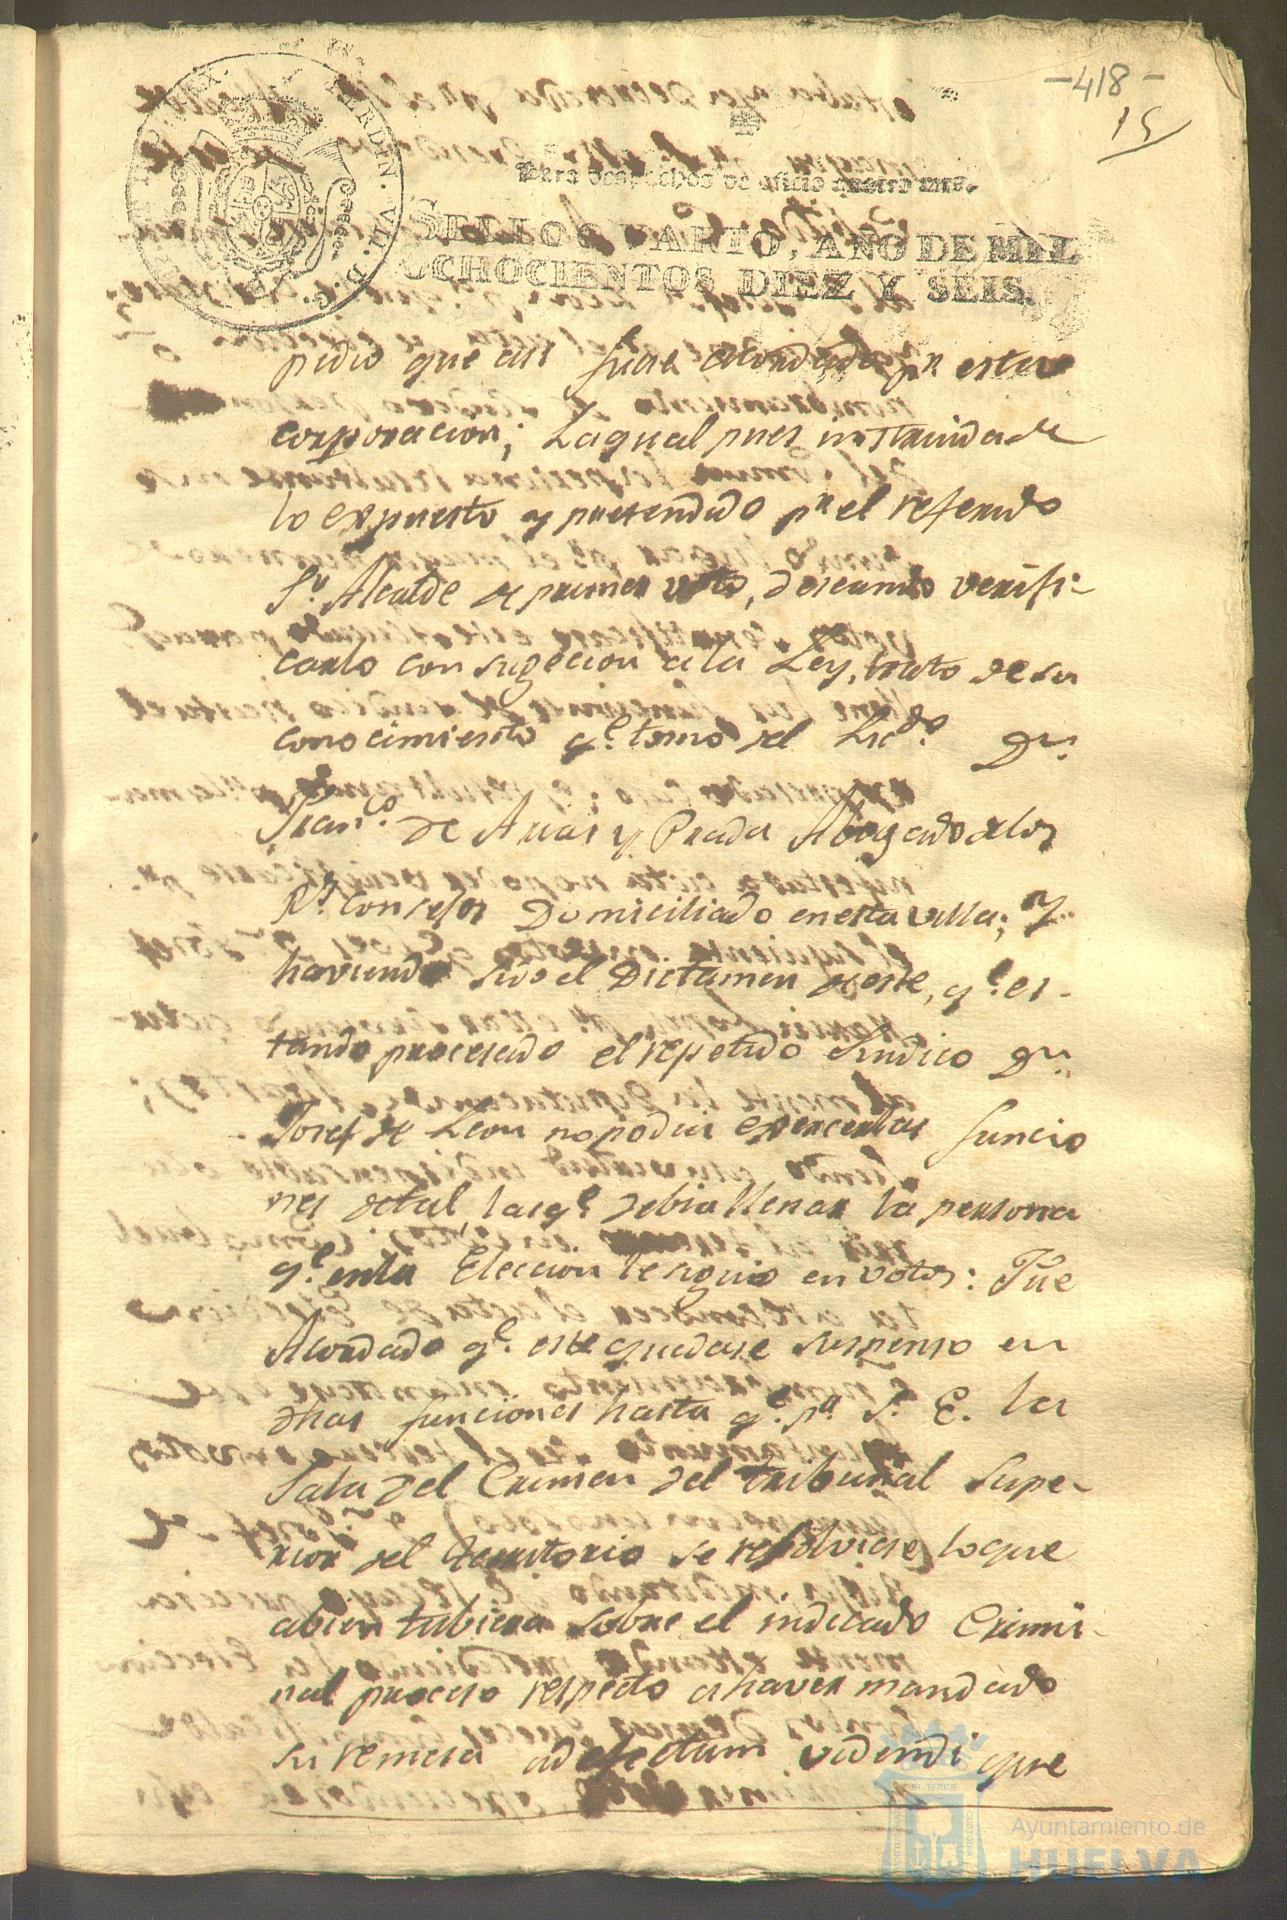 -418-
15
FERDIN. VII. D. G.
Para despachos de oficio quatro mrs.
SELLO QUARTO, AÑO DE MIL
OCHOCIENTOS DIEZ Y SEIS.
pidio que asi fuese acordado pr. esta
corporacion; La qual pues instruida de
lo expuesto y pretendido pr. el referido
Sr. Alcalde de primer voto, deseando verifi-
carlo con sugecion a la Ley, trato de su
conocimiento qe. tomó del Licdo. Dn.
Franco. de Arias y Prada Abogado de los
Rs. Consejos Domiciliado en esta villa; y
haviendo sido el Dictamen de este, qe. es-
tando procesado el repetido Sindico Dn.
Josef de Leon no podia exercer las funcio
nes de tal, las qe. debia llenar la persona
qe. en la Eleccion le siguio en votos: Fue
Acordado qe. este quedase suspenso en
dhas funciones hasta qe. pr. S. E. la
Sala del Crimen del Tribunal Supe-
rior del Territorio se resolviese lo que
abien tubiera sobre el indicado Crimi-
nal proceso respecto a haver mandado
su remesa ad efectum videndi que
Ayuntamiento de
HUELVA